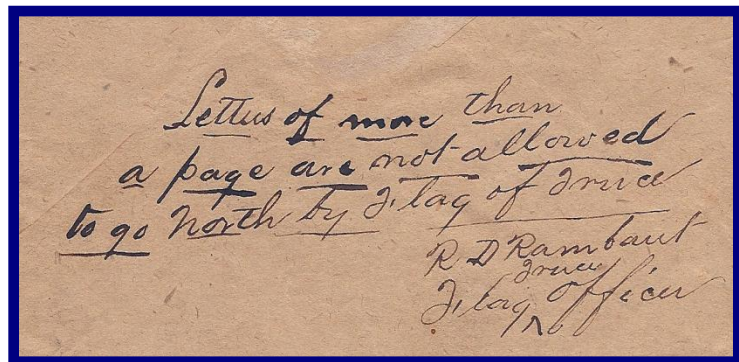 Letters of more than
a page are not allowed
to go North by Flag of Truce
R D Rambaut
Flag Truce Officer